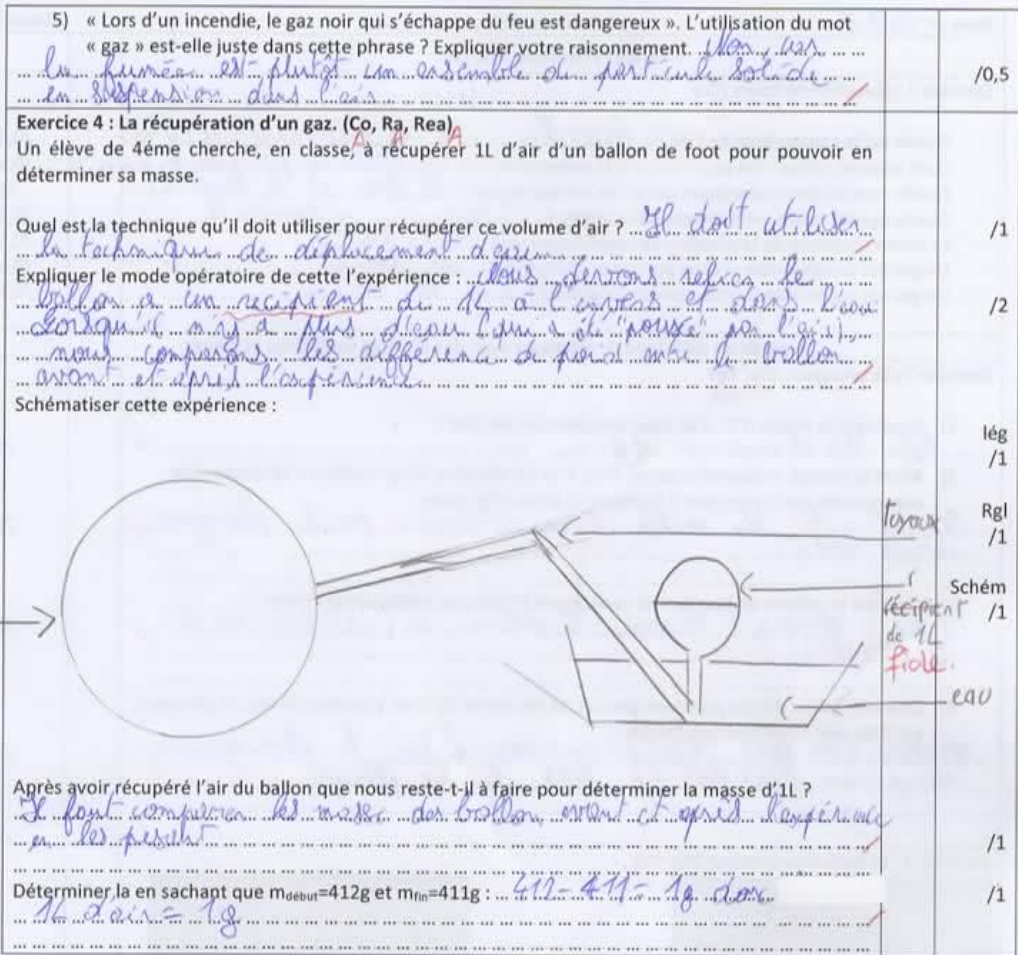 5) « Lors d’un incendie, le gaz noir qui s’échappe du feu est dangereux ». L’utilisation du mot
« gaz » est-elle juste dans cette phrase ? Expliquer votre raisonnement. Non, car
la fumée est plutôt un ensemble de particule solide
en suspension dans l'air
/0,5
Exercice 4 : La récupération d’un gaz. (Co, Ra, Rea)
A A A
Un élève de 4éme cherche, en classe, à récupérer 1L d’air d’un ballon de foot pour pouvoir en
déterminer sa masse.
Quel est la technique qu’il doit utiliser pour récupérer ce volume d’air ? Il doit utiliser
la technique de déplacement d'eau
/1
Expliquer le mode opératoire de cette l’expérience : Nous devrons relier le
ballon a un recipient de 1L a l'envers et dans l'eau
/2
Lorsqu'il n'y a plus d'eau (qui a été "poussé" par l'air),
nous comparons les différence de poid entre le ballon
avant et après l'expérience
Schématiser cette expérience :
lég
/1
Rgl
/1
Schém
/1
tuyaux
récipient
de 1L
fiole.
eau
Après avoir récupéré l’air du ballon que nous reste-t-il à faire pour déterminer la masse d’1L ?
Il faut comparer les masse des ballon, avant et après l'expérience
en les pesant
/1
Déterminer la en sachant que mdébut=412g et mfin=411g : 412-411= 1g donc
1L d'air = 1g
/1